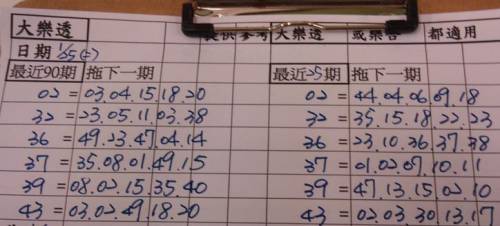 大樂透 提供參考 大樂透 或樂合 都適用
日期 1/25(二)
最近90期 拖下一期 最近25期 拖下一期
02 = 03.04.15.18.20 02 = 44.04.06.09.18
32 = 23.05.11.03.38 32 = 35.15.18.22.23
36 = 49.23.47.04.14 36 = 23.10.36.37.38
37 = 35.08.01.49.15 37 = 01.02.07.10.11
39 = 08.02.15.35.40 39 = 47.13.15.02.10
43 = 03.02.49.18.20 43 = 02.03.30.13.17